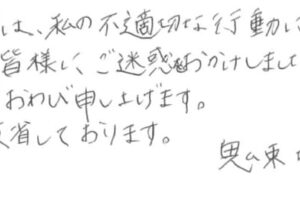 は、私の不適切な行動に
皆様に、ご迷惑をおかけしました
おわび申し上げます。
反省しております。
東